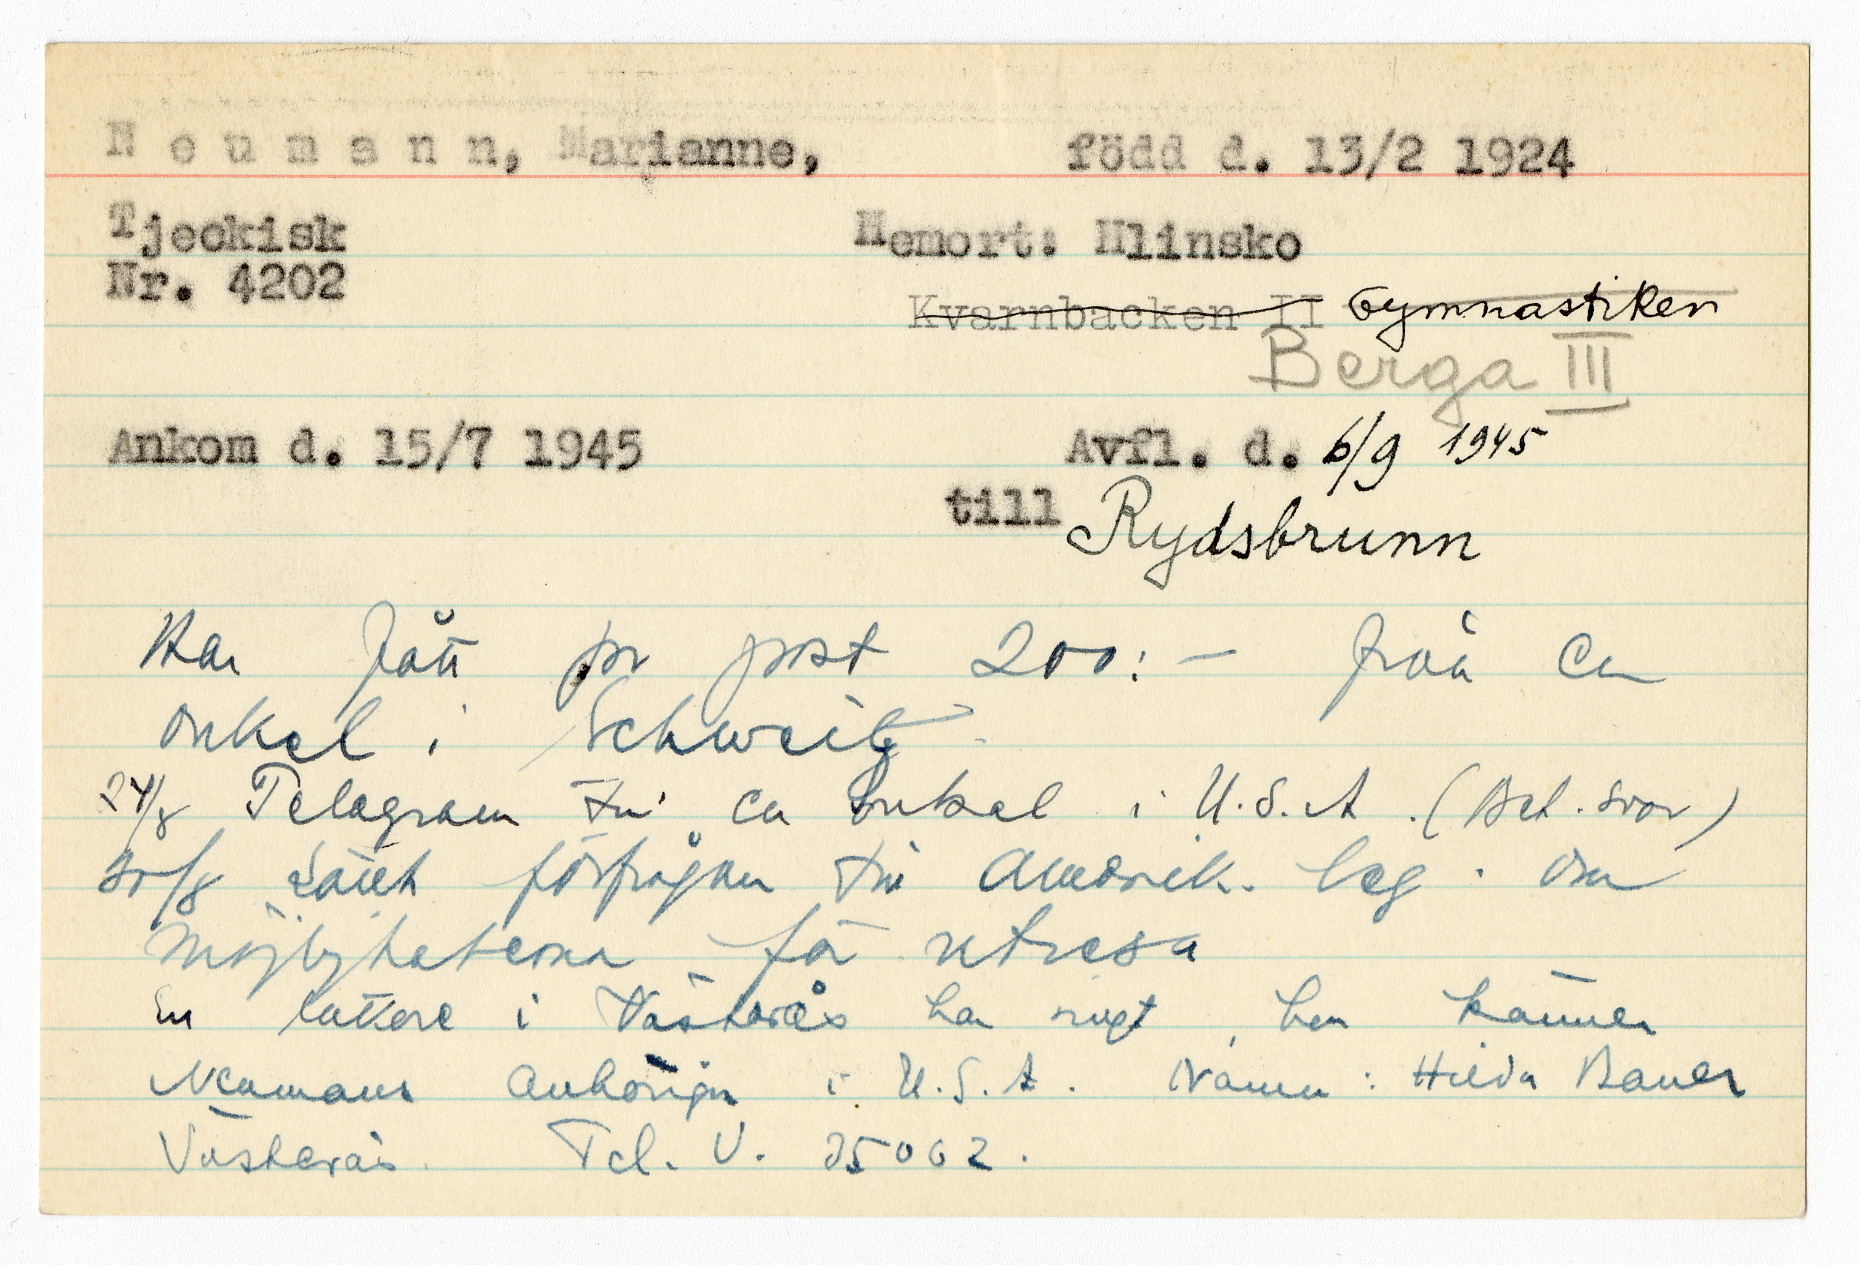 Neumann, Marianne, född d. 13/2 1924
Tjeckisk Hemort: Hlinsko
Nr. 4202
Kvarnbacken II Gymnastiken
Berga III
Ankom d. 15/7 1945 Avfl. d. 6/9 1945
till Rydsbrunn
Har fått pr post 200:- från en
onkel i Schweitz.
24/8 Telegram till en onkel i U.S.A. (Bet. svar)
förfrågan till Amerik. leg. om
möjligheterna för utresa
En i Västerås har ringt, hon känner
Neumans anhöriga i U.S.A. Namn: Hilda Bauer
Västerås. Tel. V. 35002.